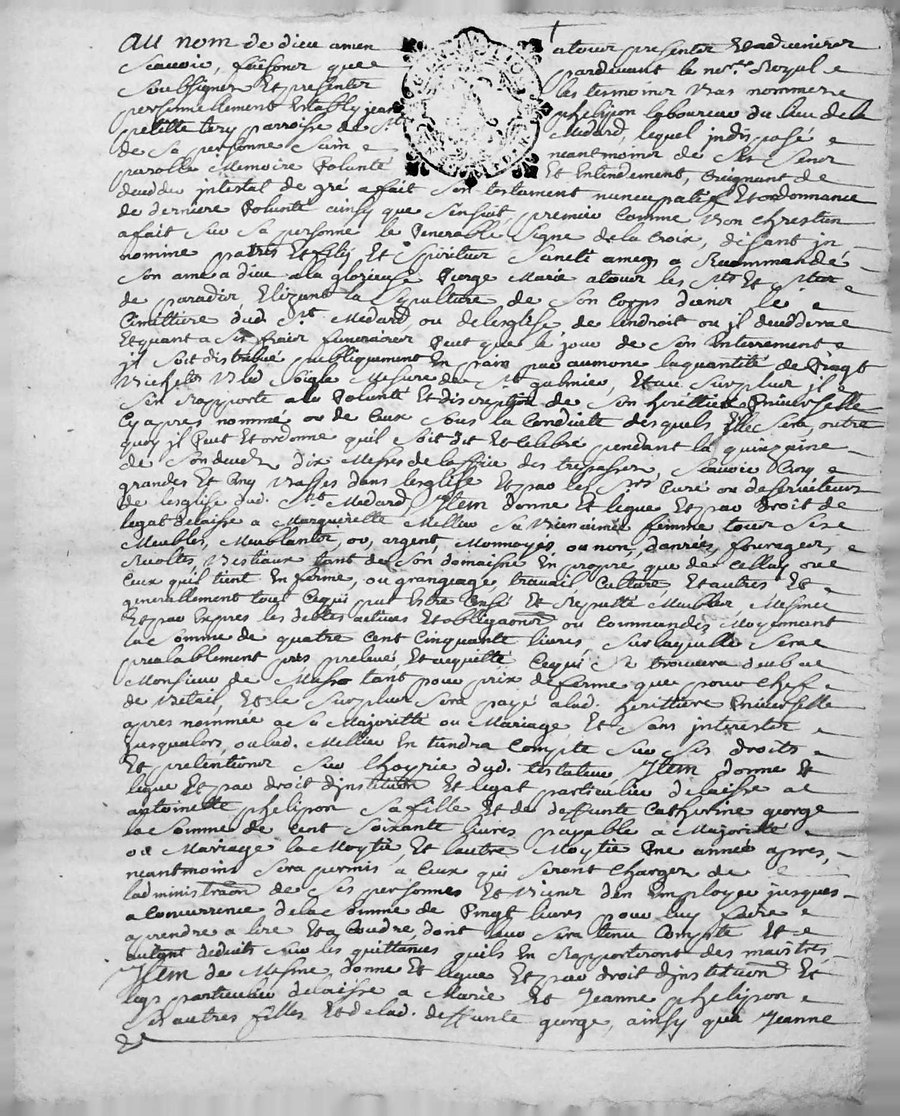 au nom de dieu amen atous presents et advenirs
scavoir, faisons que pardevant le nore Royal
soubsigné et presents les temoins bas nommes
personnellement estably jean phelipon laboureur du lieu de la
petitte tery parroisse de st Medard, lequel indisposé
de sa personne sain neantmoins de ses sens
parolle Memoire volunté et entendement, craignant de
decedder intestat de gré a fait son testament nuncupatif et ordonnance
de derniere volunté ainsy que sensuit, premier comme bon chrestien
a fait sur sa personne le venerable signe de la croix, disant in
nomine patris et filij et spiritus sancti amen, a Recommandé
son ame a dieu a la glorieuse vierge Marie a tous les sts et stes
de paradis, Elizant la sepulture de son corps dans le
cimittiere dud. st Medard, ou de lesglise de lendroit ou il deceddera
Et quant a ses fraix funeraires veut que le jour de son enterrement
il soit distribué publiquement en pain par aumone la quantité de vingt
bichets bled seigle mesure de st galmier, et au surplus il
sen rapporte a la volunté et discretion de son heritiere universelle
cy apres nommé ou de ceux sous la conduite desquels elle sera, outre
quoy il veut et ordonne quil soit dit et celebré pendant la quinzaine
de son deceds dix messes de loffice des trepasses, scavoir cinq
grandes et cinq basses dans lesglise et par les srs curé ou deserviteurs
de lesglise dud. st Medard, Item donne et legue et par droit de
legat delaisse a Marguerette Mellier sa bienaimée femme tous ses
Meubles, Meublants, or, argent, Monnoyés, ou non, danrées, fourages,
Recoltes, bestiaux tant de son domaine en propre que de celluy ou
ceux quil tient en ferme, ou grangeage travail culture, et autres et
generallement tout ce qui peut estre censé et reputté meubles, mesmes
et par expres les debtes actives et obligaons ou commandes, moyennant
la somme de quatre cent cinquante livres, sur laquelle sera
prealablement pris prelevé, et acquitté ce qui se trouvera deub a
Monsieur de tant pour prix de ferme que pour chef
de betail, et le surplus sera payé a lad. heritiere universelle
apres nommée a sa Majoritté ou Mariage, et sans interests
jusqualors, ou lad. Mellier en tiendra compte sur ses droits
et pretentions sur lhoyrie dud. testateur Item donne et
legue et par droit dinstitution et legat particulier delaisse a
antoinette phelipon sa fille et de deffunte Catherine george
la somme de cent soixante livres payable a Majoritté
ou Mariage la moytié, et lautre moytié une année apres,
neantmoins sera permis a ceux qui seront chargés de
ladministraon de ses personnes et biens den employer jusques
a concurrence de la somme de vingt livres pour luy faire
aprendre a lire et a coudre, dont leur sera tenu compte et
autant deduits sur les quittances quils en rapporteront des maistres,
Item de mesme, donne et legue et par droit dinstitution et
legs particulier delaisse a Marie et Jeanne phelipon
ses autres filles et de lad. deffunte george, ainsy que Jeanne